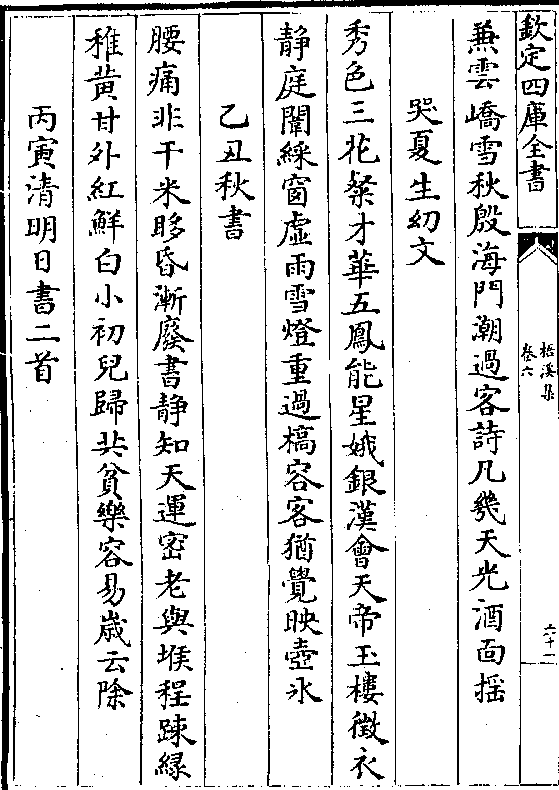 欽定四庫全書
梧溪集
卷六
六十一
蒹雲嶠雪秋殷海門潮過客詩凡幾天光酒面揺
哭夏生幼文
秀色三花粲才華五鳳能星娥銀漢會天帝玉樓徵衣
静庭闈綵窗虚雨雪燈重過槁容客猶覺映壺氷
乙丑秋書
腰痛非干米眵昏漸廢書静知天運密老與堠程踈緑
稚黄甘外紅鮮白小初兒歸共貧樂容易歳云除
丙寅清明日書二首